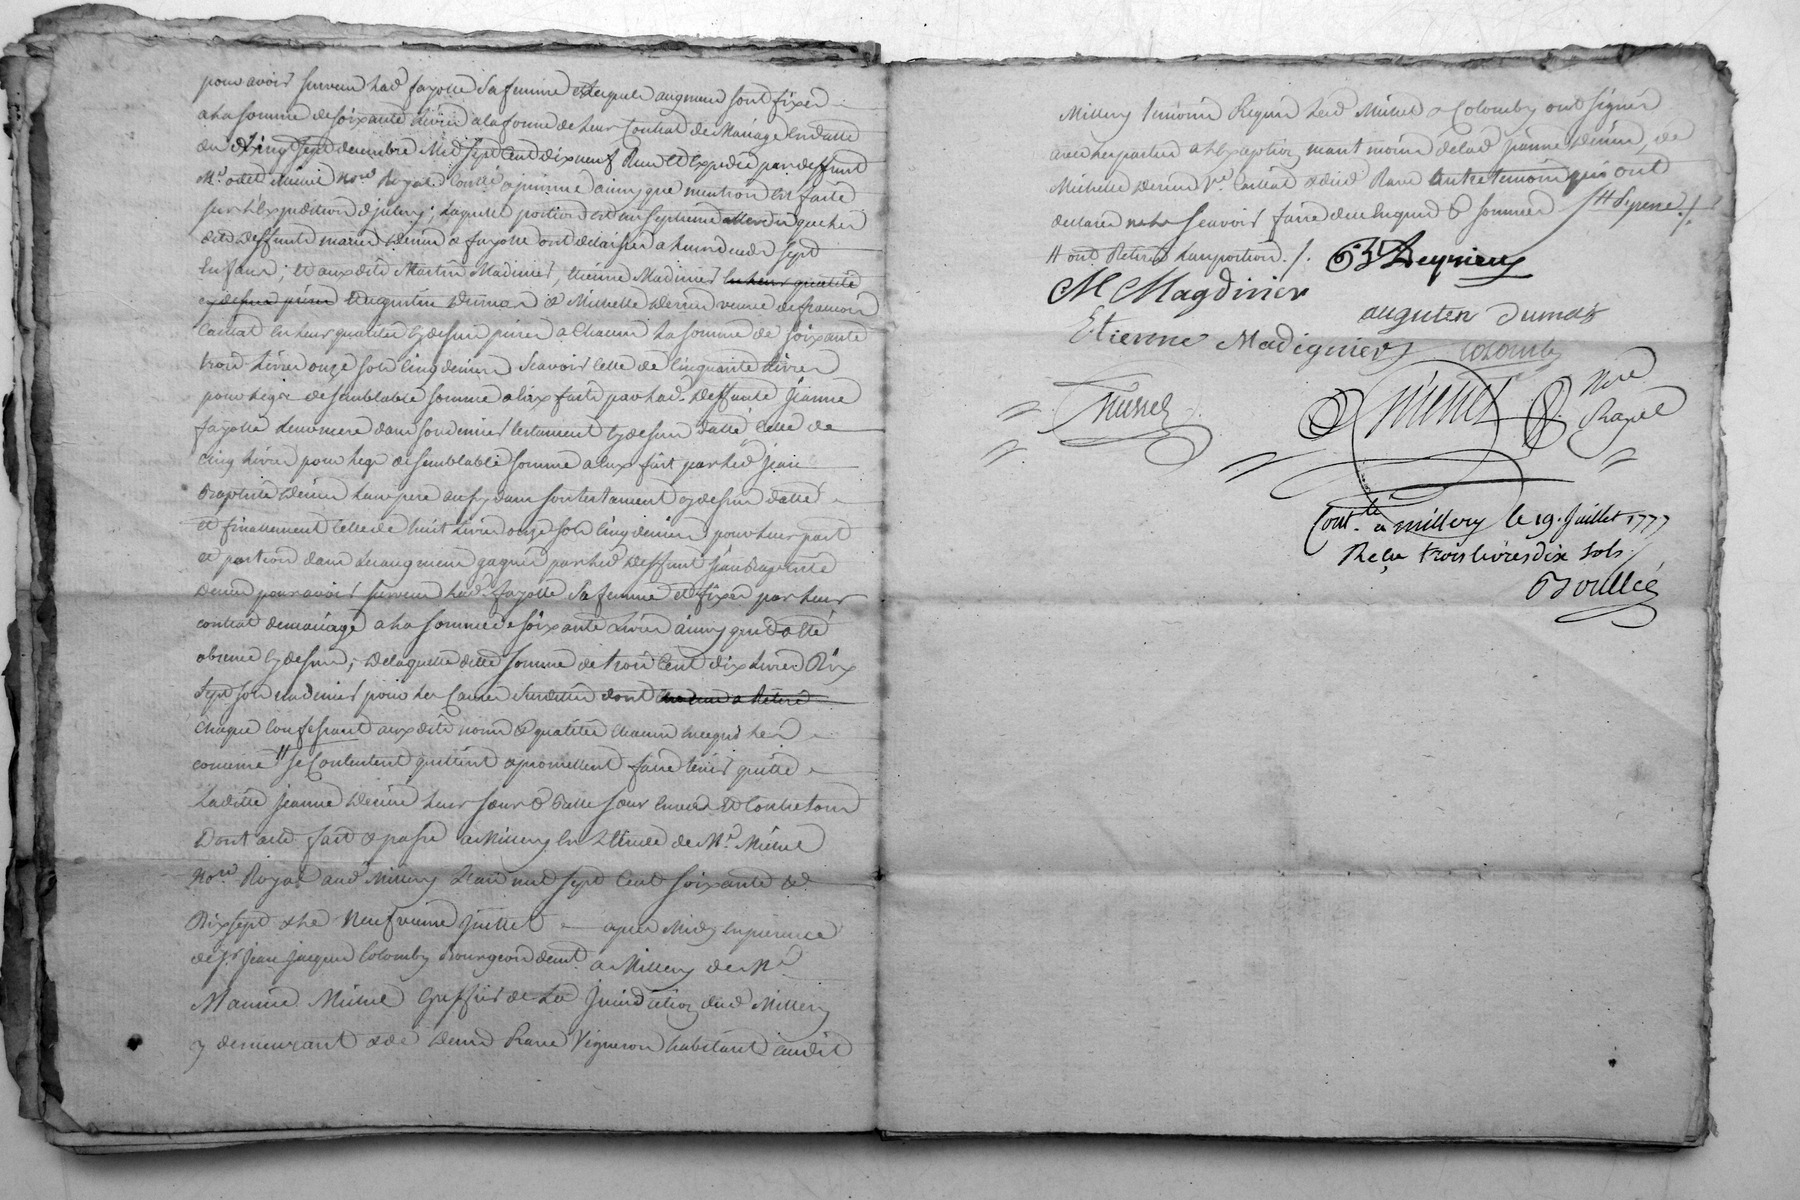 pour avoir survecu lad. fayolle sa femme et lequel augment sont fixés
a la somme de soixante livres a la forme de leur Contrat de Mariage en datte
du vingt sept decembre Mil sept Cent dix neuf Receu et Expedié par deffunt
Mr. odet Michel nore. Royal ainsy que mention est faite
sur l'Expedition d'juluy; laquelle portion est un septieme attendu que les
dits deffunts mariés Derieu & fayolle ont délaissés a leurs deces sept
Enfans; Et auxdits Martin Madinier, Etienne Madinier en leurs qualités
cydessus prises Et augustin Dumas & Michelle Derieu veuve de francois
en leurs qualités cydessus prises a Chacun La somme de soixante
trois Livres onze sols Cinq deniers Scavoir Celle de Cinquante Livres
pour legs de semblable somme a Eux faits par lad. Deffunte Jeanne
fayolle leur mere dans son dernier testament cydessus datté Celle de
Cinq Livres pour legs de semblable somme a Eux fait par led. Jean
Baptiste Derieu leur pere aussy dans son testament cydessus datté
et finallement Celle de huit Livres onze sols Cinq deniers pour leur part
et portion dans l'augment gagné par led. Deffunt Jean Baptiste
Derieu pour avoir survecu lad. fayolle sa femme et fixés par leur
contrat de mariage a la somme de soixante Livres ainsy que datté
cydessus; De laquelle ditte somme de trois Cent dix Livres Dix
sept sols un denier pour les Causes susdittes dont
chaque Confessant auxdits noms & qualités Chacun
comme H se Contentent quittent & promettent faire tenir quitte
laditte Jeanne Derieu leur sœur & belle sœur Envers Et Contre tous
Dont acte fait & passé a Millery En L'Etude de Mr. Michel
Nore. Royal aud. Millery L'an mil sept Cent soixante et
Dix sept & le Neufvieme Juillet apres Midy En presence
de sr. Jean Jacques Colomby Bourgeois demt. a Millery de Me.
Maurice Michel Greffier de La Jurisdiction dud. Millery
y demeurant & de Denis Rane Vigneron habitant audit
Millery temoins Requis Led. Michel & Colomby ont signés
avec les parties a L'Exception neant moins de lad. Jeanne Derieu, de
Michelle Derieu Ve. & dud. Rane autre temoin qui ont
declarés ne le Scavoir faire de ce Enquis & sommés
H ont Retirés leur portion ./.
M Magdinier
augusten dumas
Etienne Madignier Colomby
Michel Nore
Royal
Contlé a millery le 19. Juillet 1777
Reçu trois livres dix sols
Boullée